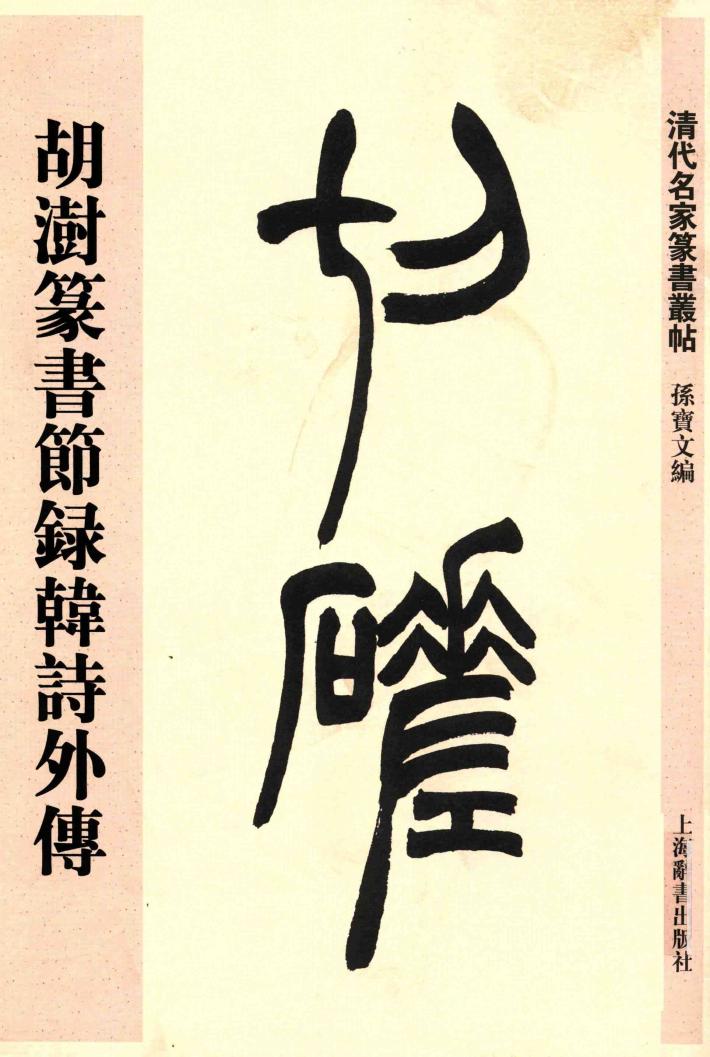 清代名家篆書叢帖 孫寶文編 上海辭書出版社
切磋
胡澍篆書節録韓詩外傳